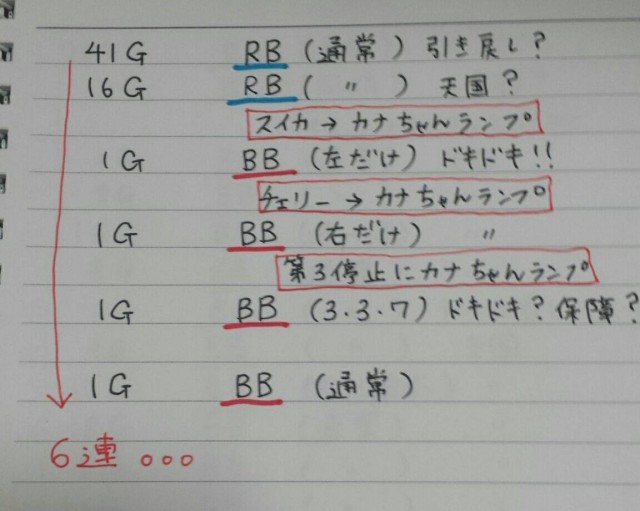 41G RB (通常) 引き戻し?
16G RB ( 〃 ) 天国?
スイカ→カナちゃんランプ
1G BB (左だけ) ドキドキ!!
チェリー→カナちゃんランプ
1G BB (右だけ) 〃
第3停止にカナちゃんランプ
1G BB (3.3.7) ドキドキ?保障?
1G BB (通常)
6連 。。。